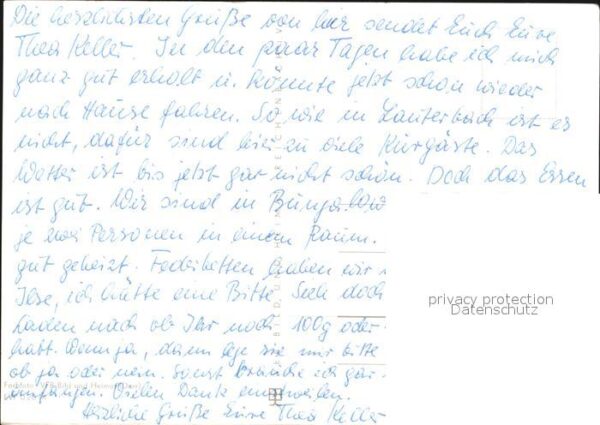 Die herzlichsten Grüße von hier sendet Euch Eure
Thea Keller. In den paar Tagen habe ich mich
ganz gut erholt u. könnte jetzt schon wieder
nach Hause fahren. So wie in Lauterbach ist es
nicht, dafür sind hier zu viele Kurgäste. Das
Wetter ist bis jetzt gar nicht schön. Doch das Essen
ist gut. Wir sind in Bungalow
je zwei Personen in einem Raum.
gut geheizt. Federbetten haben wir
Ilse, ich hätte eine Bitte Seh doch
Laden nach ob Ihr noch 100g oder
habt. Wenn ja, dann lege sie mir bitte
ob ja oder nein. Sonst brauche ich gar
anfangen. Vielen Dank einstweilen.
Herzliche Grüße Eure Thea Keller
privacy protection
Datenschutz